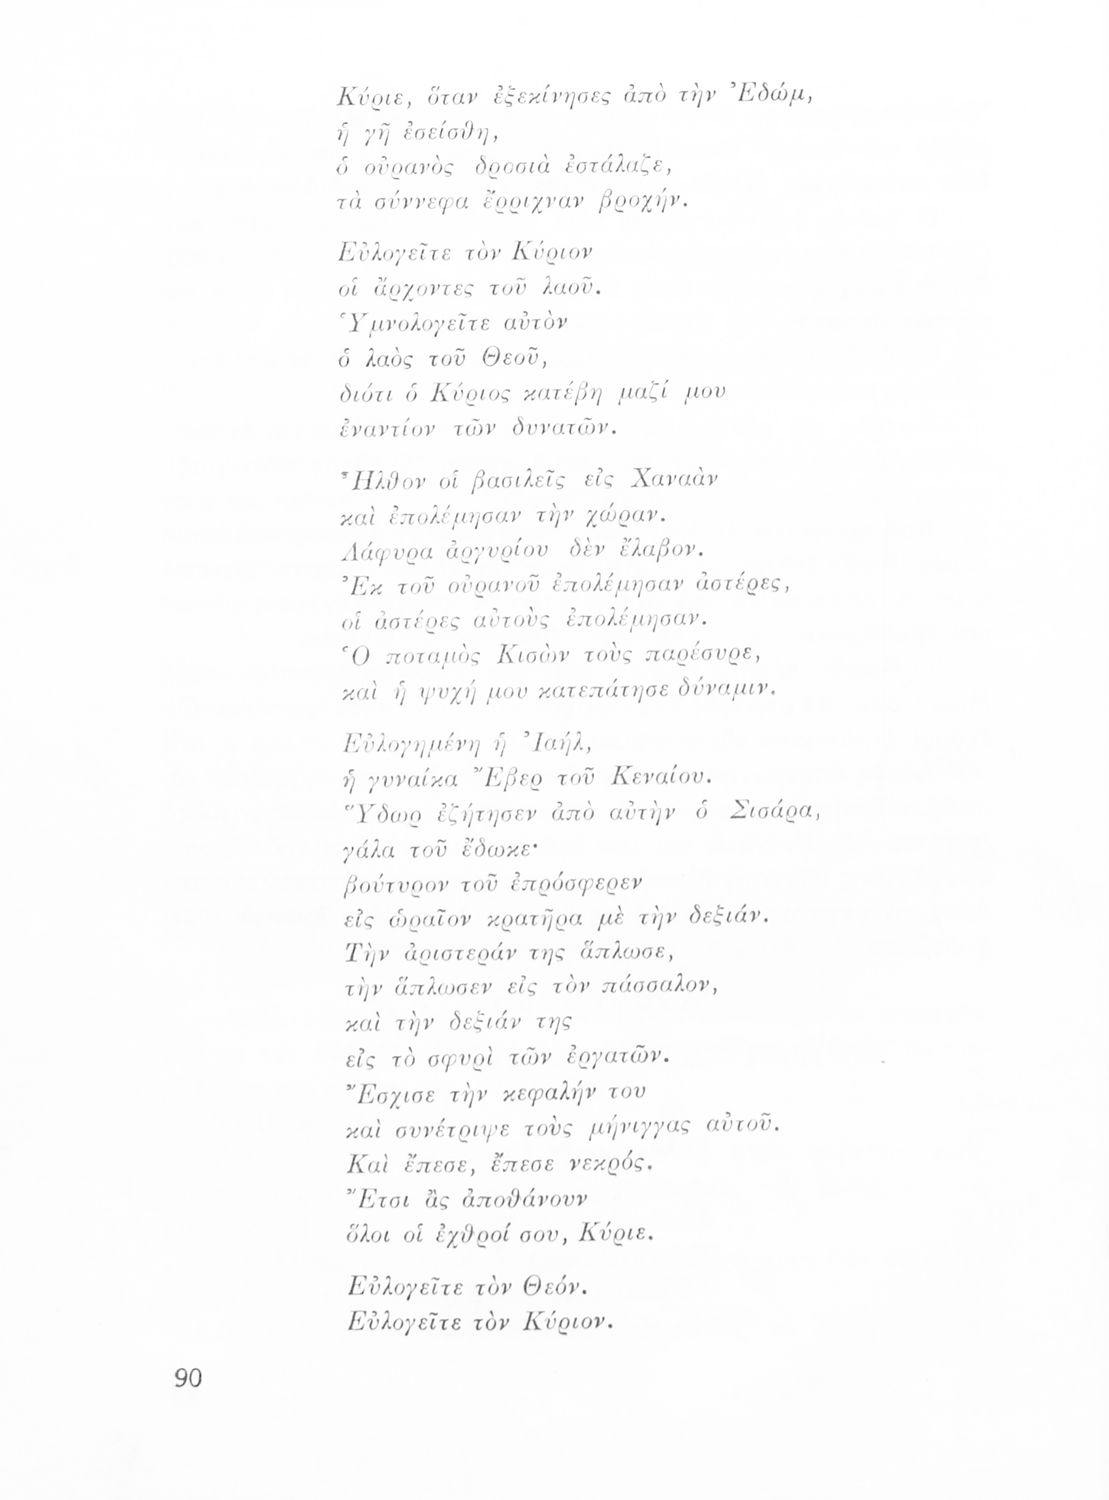 Κύριε, ὅταν ἐξεκίνησες ἀπὸ τὴν Ἐδώμ,
ἡ γῆ ἐσείσθη,
ὁ οὐρανὸς δροσιὰ ἐστάλαζε,
τὰ σύννεφα ἔρριχναν βροχήν.
Εὐλογεῖτε τὸν Κύριον
οἱ ἄρχοντες τοῦ λαοῦ.
Ὑμνολογεῖτε αὐτὸν
ὁ λαὸς τοῦ Θεοῦ,
διότι ὁ Κύριος κατέβη μαζί μου
ἐναντίον τῶν δυνατῶν.
Ἦλθον οἱ βασιλεῖς εἰς Χαναὰν
καὶ ἐπολέμησαν τὴν χώραν.
Λάφυρα ἀργυρίου δὲν ἔλαβον.
Ἐκ τοῦ οὐρανοῦ ἐπολέμησαν ἀστέρες,
οἱ ἀστέρες αὐτοὺς ἐπολέμησαν.
Ὁ ποταμὸς Κισὼν τοὺς παρέσυρε,
καὶ ἡ ψυχή μου κατεπάτησε δύναμιν.
Εὐλογημένη ἡ Ἰαήλ,
ἡ γυναίκα Ἔβερ τοῦ Κεναίου.
Ὕδωρ ἐζήτησεν ἀπὸ αὐτὴν ὁ Σισάρα,
γάλα τοῦ ἔδωκε·
βούτυρον τοῦ ἐπρόσφερεν
εἰς ὡραῖον κρατῆρα μὲ τὴν δεξιάν.
Τὴν ἀριστεράν της ἅπλωσε,
τὴν ἅπλωσεν εἰς τὸν πάσσαλον,
καὶ τὴν δεξιάν της
εἰς τὸ σφυρὶ τῶν ἐργατῶν.
Ἔσχισε τὴν κεφαλήν του
καὶ συνέτριψε τοὺς μήνιγγας αὐτοῦ.
Καὶ ἔπεσε, ἔπεσε νεκρός.
Ἔτσι ἂς ἀποθάνουν
ὅλοι οἱ ἐχθροί σου, Κύριε.
Εὐλογεῖτε τὸν Θεόν.
Εὐλογεῖτε τὸν Κύριον.
90